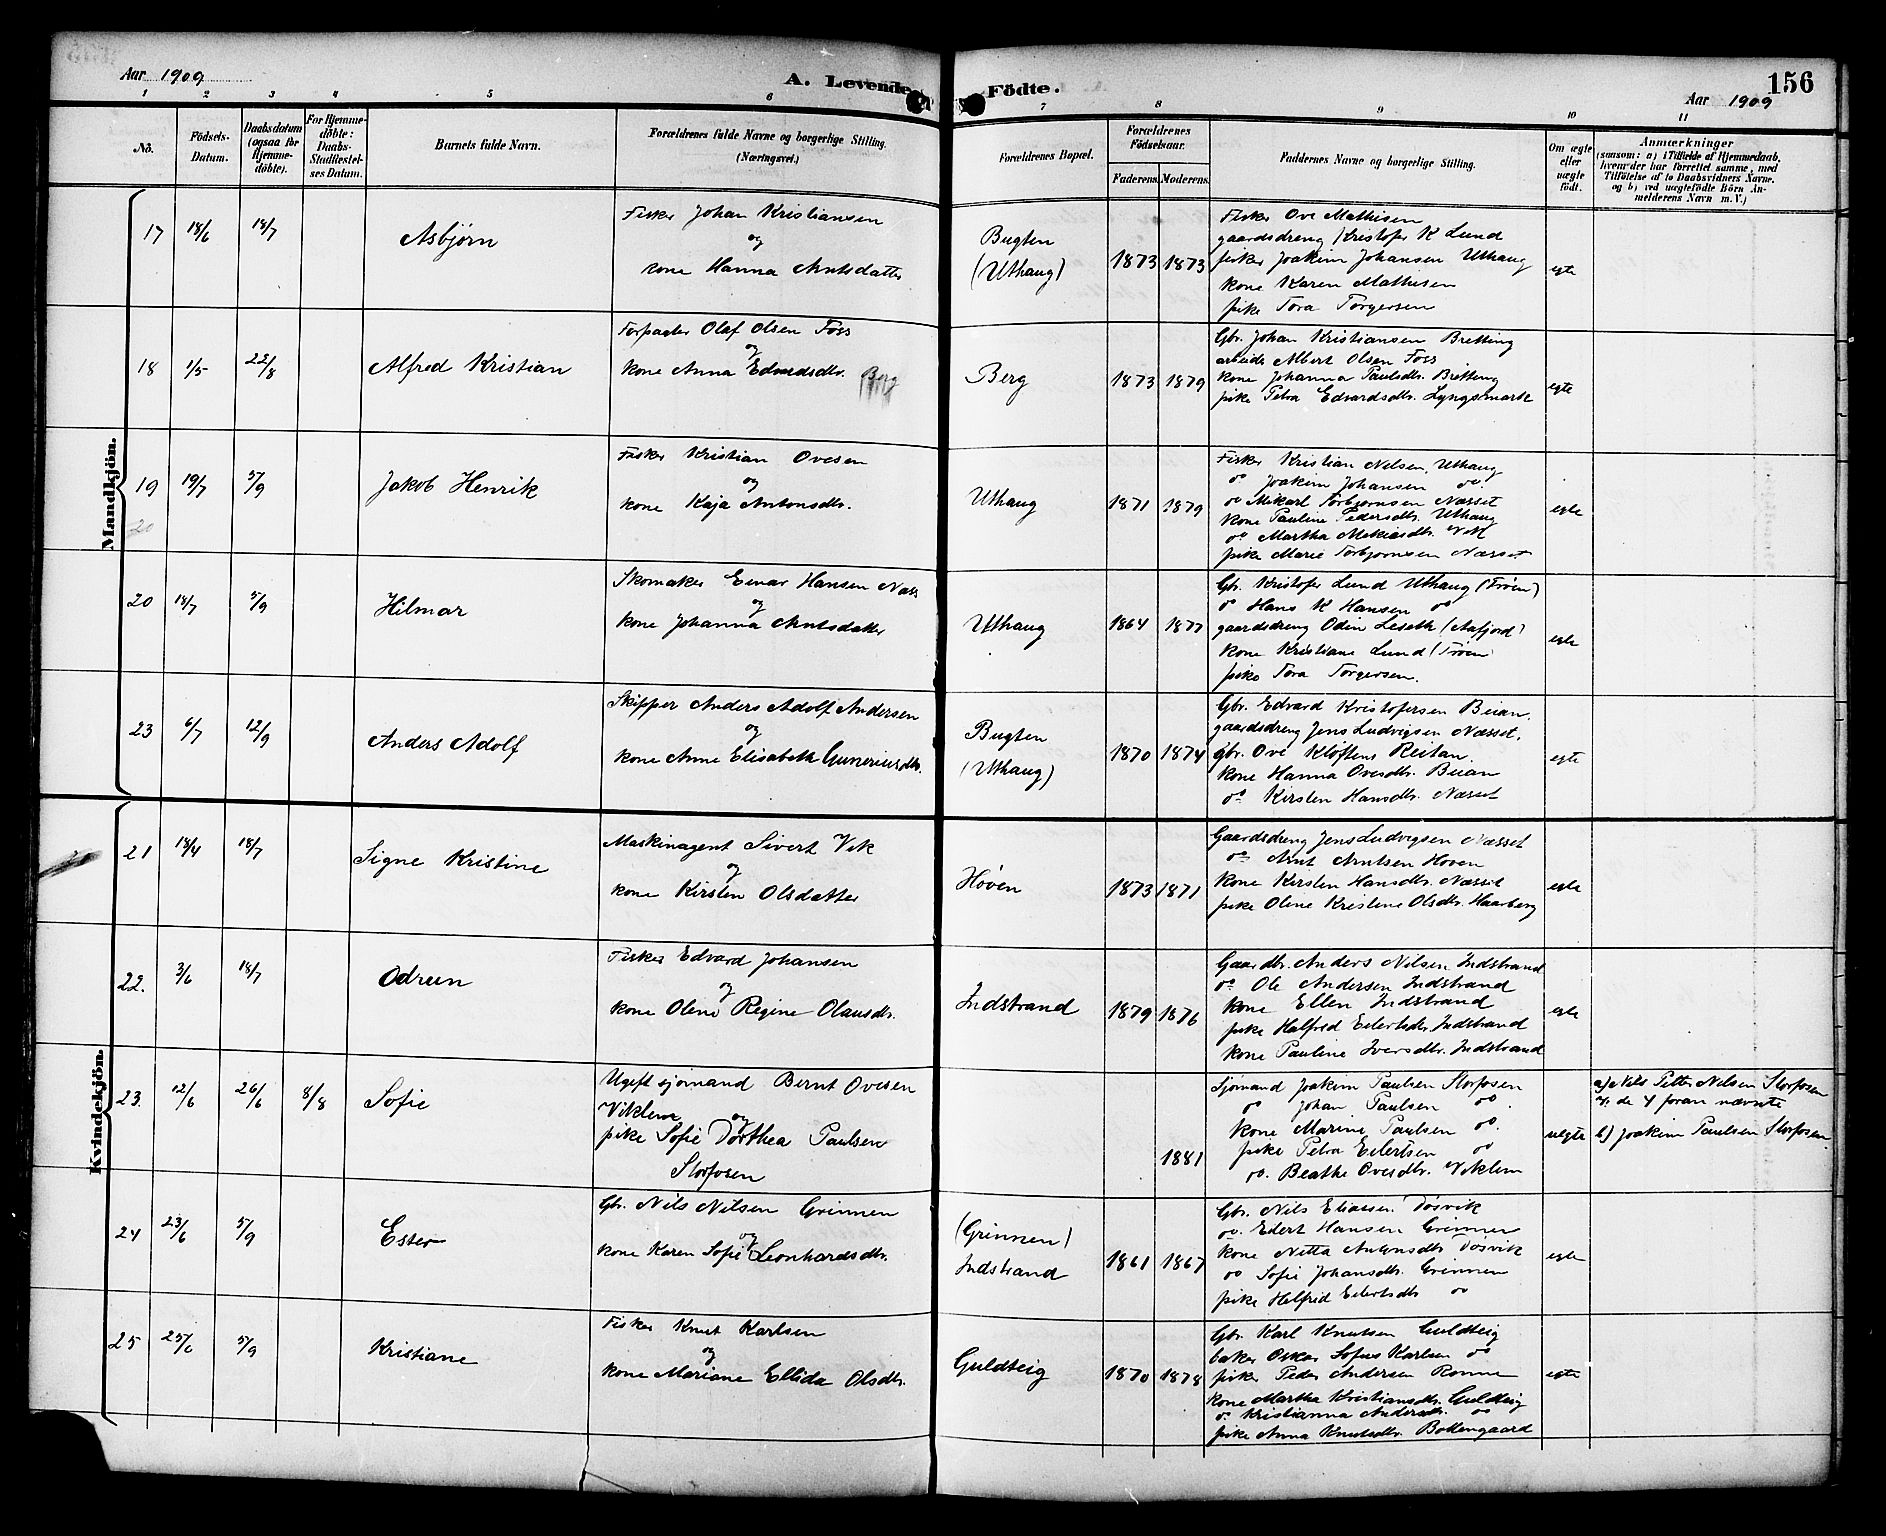 Aar 1909
A. Levende Födte.
156
Aar 1909
1 2 3 4 5 6 7 8 9 10 11
No.
Födsels-
Datum.
Daabsdatum
(ogsaa for
Hjemme-
döbte).
For Hjemme-
döbte:
Daabs-
Stadfæstel-
ses Datum.
Barnets fulde Navn.
Forældrenes fulde Navne og borgerlige Stilling.
(Næringsvei.)
Forældrenes Bopæl.
Forældrenes
Födselsaar.
Faderens. Moderens.
Faddernes Navne og borgerlige Stilling.
Om ægte
eller
uægte
födt.
Anmærkninger
(saasom: a) i Tilfælde af Hjemmedaab,
hvem der har forrettet samme, med
Tilföielse af to Daabsvidners Navne,
og b) ved uægtefödte Börn An-
melderens Navn m. V.)
Mandkjön.
17 18/6 18/7
Asbjørn
Fisker Johan Kristiansen
og
kone Hanna Arntsdatter
Bugten
(Uthaug)
1873 1873
Fisker Ove Mathisen
gaardsdreng Kristofer K Lund
fisker Joakim Johansen Uthaug
kone Karen Mathisen
pike Tora Torgersen
egte
18 1/5 22/8
Alfred Kristian
Forpagter Olaf Olsen Foss
og
kone Anna Edvardsdtr. Berg
Berg
1873 1879
Gbr. Johan Kristiansen Bretting
arbeids Albert Olsen Foss
kone Johanna Paulsdtr. Bretting
pike Petra Edvardsdtr. Lyngsmark
egte
19 19/7 5/9
20
Jakob Henrik
Fisker Kristian Ovesen
og
kone Kaja Antonsdtr.
Uthaug
1871 1879
Fisker Kristian Nilsen, Uthaug
do Joakim Johansen do
do Mikael Torbjørnsen Næsset
kone Pauline Pedersdtr. Uthaug
do Martha Mekiasdtr. Vik
pike Marie Torbjørnsen Næsset
egte
20 18/7 5/9
Hilmar
Skomaker Einar Hansen Næss
og
kone Johanna Arntsdatter
Uthaug
1864 1877
Gbr. Kristofer Lund Uthaug (Trøen)
do Hans K Hansen do
gaardsdreng Odin Leseth (Aafjord)
kone Kristiane Lund (Trøen)
pike Tora Torgersen.
egte
23 6/7 12/9
Anders Adolf
Skipper Anders Adolf Andersen
og
kone Anne Elisabeth Gunneriusdtr.
Bugten
(Uthaug)
1870 1874
Gbr. Edvard Kristofersen Beian.
gaardsdreng Jens Ludvigsen Næsset.
gbr. Ove Kløften Reitan.
kone Hanna Ovesdtr. Beian
do Kirsten Hansdtr. Næsset
egte
Kvindekjön.
21 18/4 18/7
Signe Kristine
Maskinagent Sivert Vik
og
kone Kirsten Olsdatter
Høven
1873 1871
Gaardsdreng Jens Ludvigsen Næsset
do Arnt Arntsen Hoven
kone Kirsten Hansdtr. Næsset
pike Oline Kristine Olsdtr. Haarberg
egte
22. 3/6 18/7
Odrun
Fisker Edvard Johansen
og
kone Oline Regine Olausdtr.
Indstrand
1879 1876
Gaardbr. Anders Nilsen Indstrand
do Ole Andersen Indstrand
kone Ellen Indstrand
pike Halfrid Eilertsdtr. Indstrand
kone Pauline Iversdtr. Indstrand
egte
23. 12/6 26/6 8/8
Sofie
Ugift sjømand Bernt Ovesen
Viklem
og
pike Sofie Dorthea Paulsen
Storfosen
1881
Sjømand Joakim Paulsen Storfosen
do Johan Paulsen do
kone Marine Paulsen do.
pike Petra Eilertsen do
do. Beathe Ovesdtr. Viklem
uegte
a) Nils Petter Nilsen Storfosen
v. de 4 foran nævnte
b) Joakim Paulsen Storfosen.
24 23/6 5/9
Ester
Gbr. Nils Nilsen Grinnen
og
kone Karen Sofie Leonhardsdtr.
(Grinnen)
Indstrand
1861 1867
Gbr. Nils Eliassen Døsvik
do. Edert Hansen Grinnen
kone Netta Døsvik
do Sofie Johansdtr. Grinnen
pike Helfrid Eilertsdtr do
egte
25 25/6 5/9
Kristiane
Fisker Knut Karlsen
og
kone Mariane Ellida Olsdtr.
Guldteig
1870 1878
Gbr. Karl Knutsen Guldteig
baker Oskar Sofus Karlsen do
fisker Peder Andersen Rønne
kone Martha Kristiansdtr. Guldteig
do. Kristianna Andersdtr. do
pike Anna Knutsdtr. Bottengaard
egte